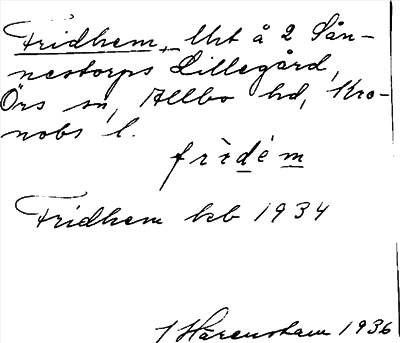 Fridhem, Uht å 2 Sån-
nestorps Lillegård,
Örs sn, Allbo hd, Kro-
nobs l.
frìdém
Fridhem kb 1934
I Härenstam 1936